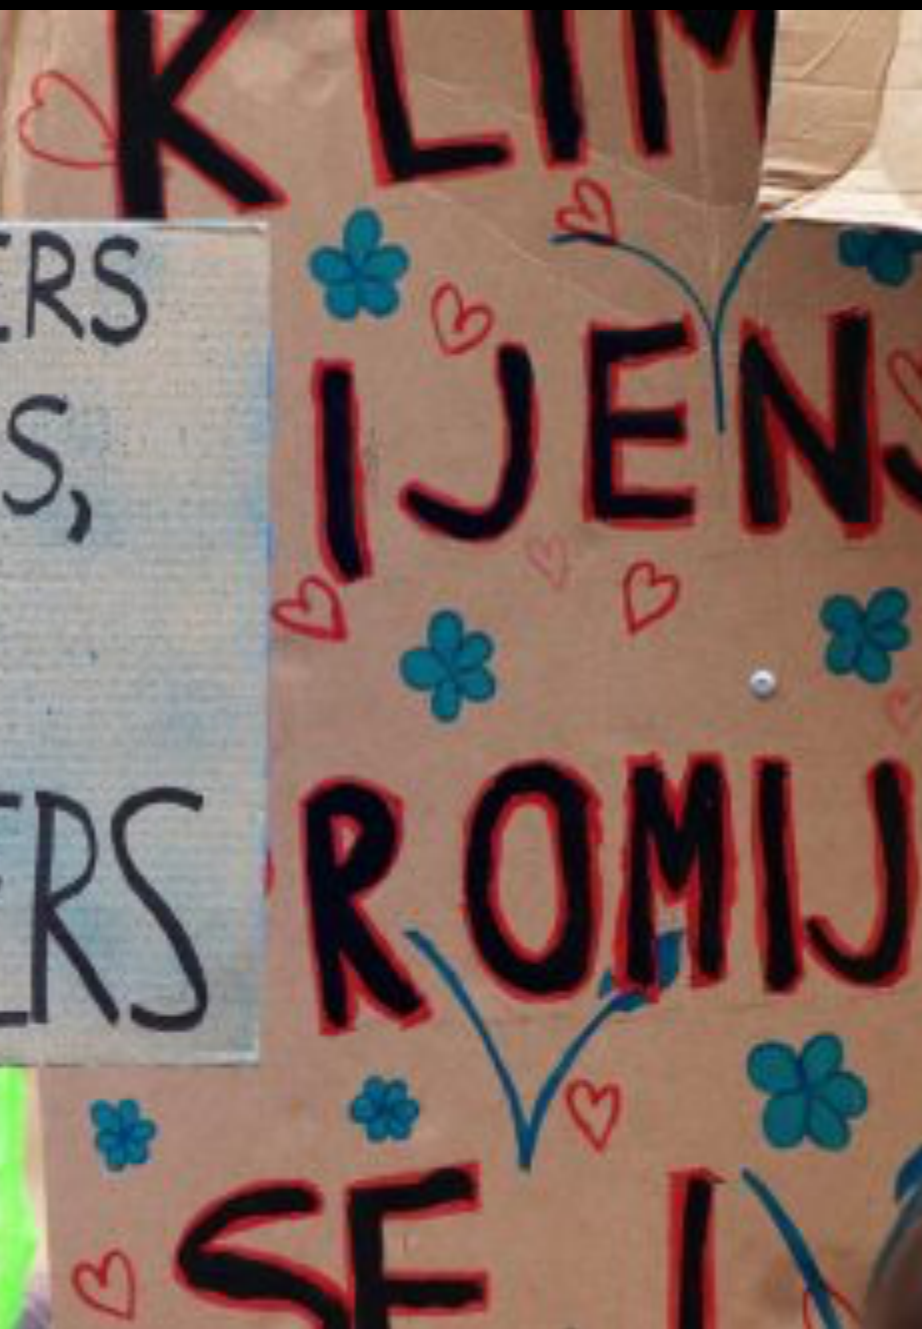 KLIM
IJENJ
ROMIJ
SE I
ERS
S,
ERS